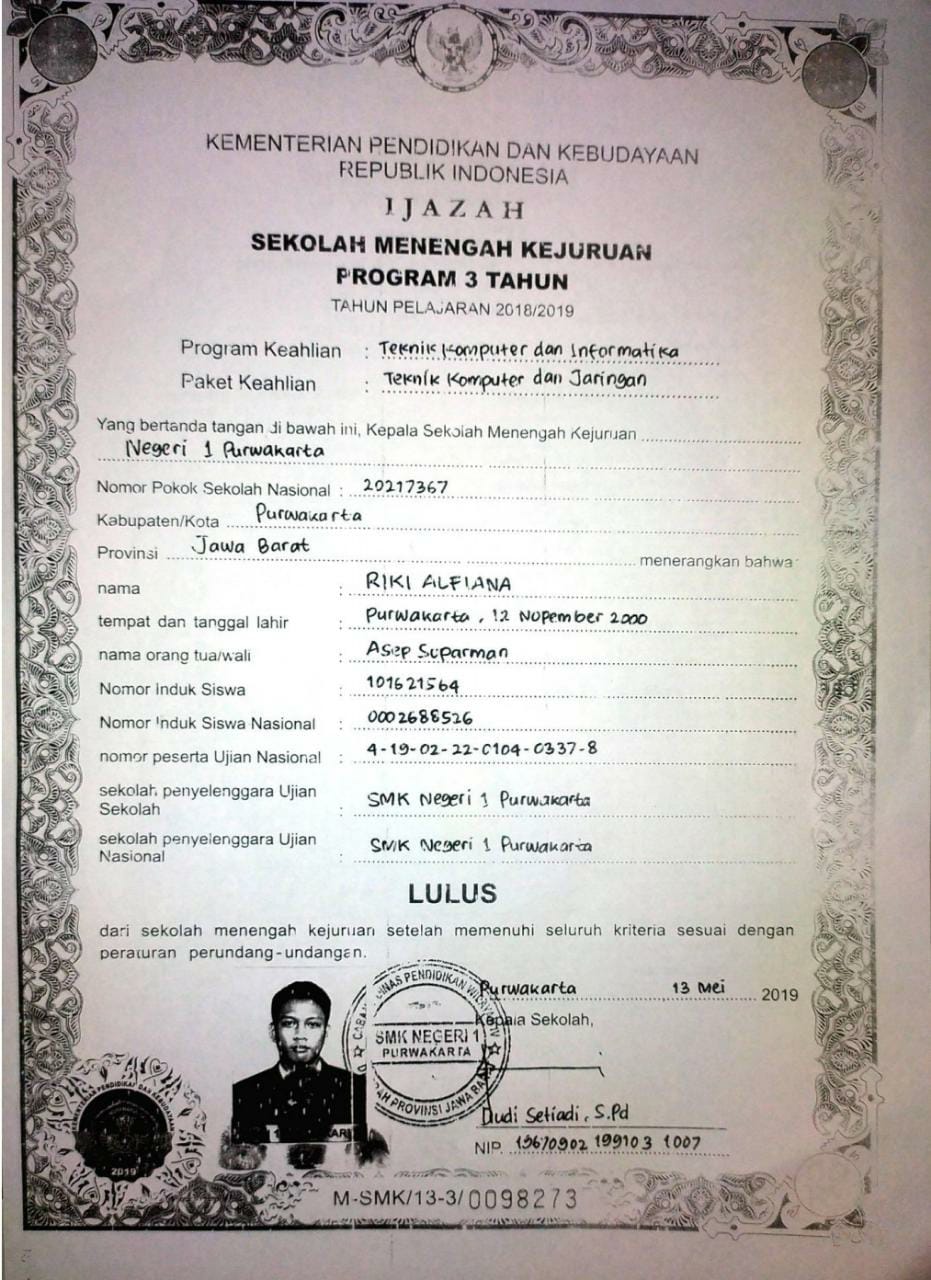 KEMENTERIAN PENDIDIKAN DAN KEBUDAYAAN
REPUBLIK INDONESIA
IJAZAH
SEKOLAH MENENGAH KEJURUAN
PROGRAM 3 TAHUN
TAHUN PELAJARAN 2018/2019
Program Keahlian : Teknik Komputer dan Informatika
Paket Keahlian : Teknik Komputer dan Jaringan
Yang bertanda tangan di bawah ini, Kepala Sekolah Menengah Kejuruan
Negeri 1 Purwakarta
Nomor Pokok Sekolah Nasional : 20217367
Kabupaten/Kota Purwakarta
Provinsi Jawa Barat menerangkan bahwa:
nama : RIKI ALFIANA
tempat dan tanggal lahir : Purwakarta, 12 Nopember 2000
nama orang tua/wali : Asep Suparman
Nomor Induk Siswa : 101621564
Nomor Induk Siswa Nasional : 0002688526
nomor peserta Ujian Nasional : 4-19-02-22-0104-0337-8
sekolah penyelenggara Ujian
Sekolah : SMK Negeri 1 Purwakarta
sekolah penyelenggara Ujian
Nasional : SMK Negeri 1 Purwakarta
LULUS
dari sekolah menengah kejuruan setelah memenuhi seluruh kriteria sesuai dengan
peraturan perundang-undangan.
Purwakarta 13 Mei 2019
Kepala Sekolah,
DINAS PENDIDIKAN
SMK NEGERI 1
PURWAKARTA
PROVINSI JAWA BARAT
Dudi Setiadi, S.Pd
NIP. 19670902 199103 1007
KEMENTERIAN PENDIDIKAN DAN KEBUDAYAAN
2019
M-SMK/13-3/0098273